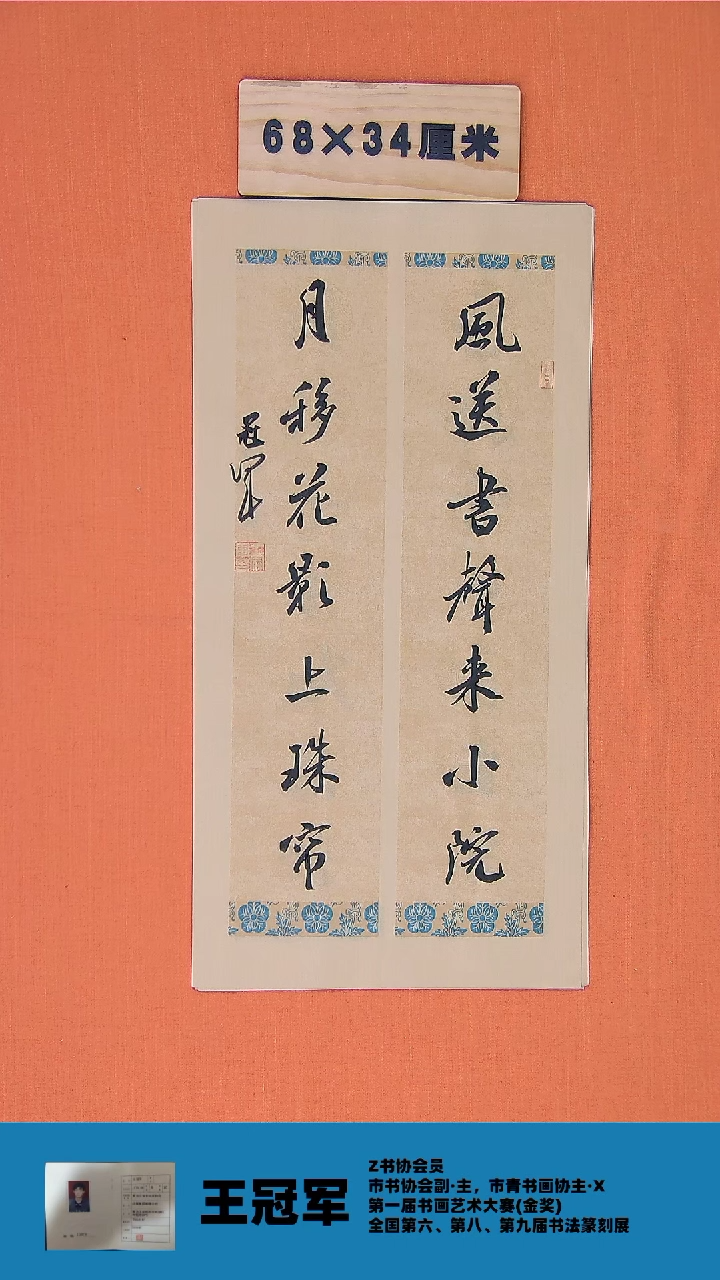 68×34厘米
風送書聲来小院
月移花影上珠帘
冠軍
王冠军
Z书协会员
市书协会副·主，市青书画协主·X
第一届书画艺术大赛(金奖)
全国第六、第八、第九届书法篆刻展